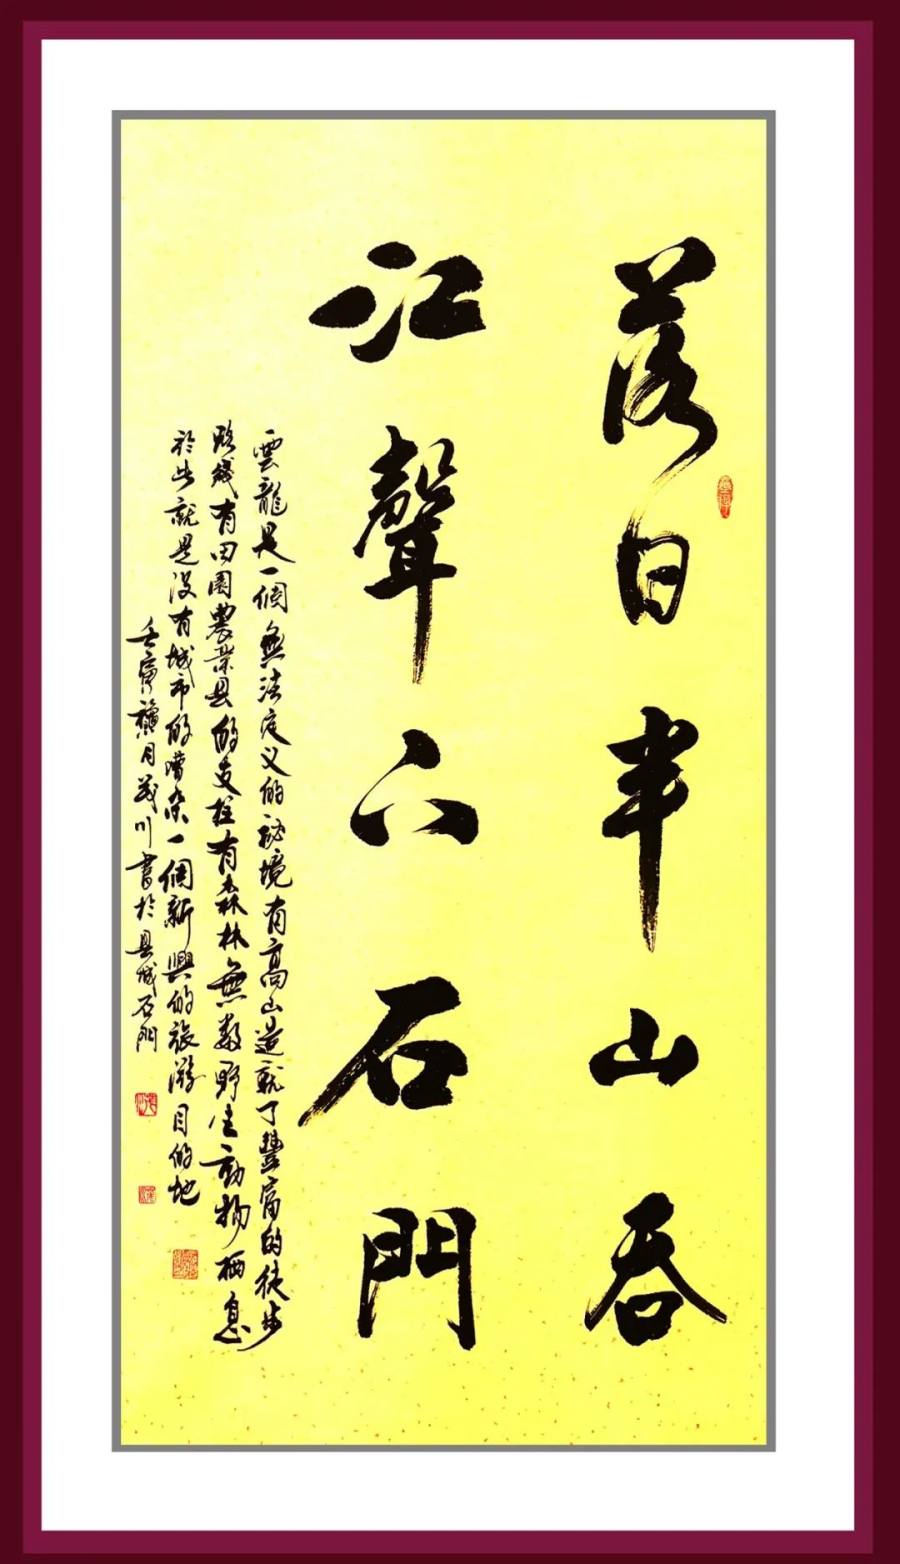 落日半山吞
江聲六石門
雲龍是一個無法定义的秘境有高山造就了豐富的徒步
路线有田園農業县的支柱有森林無数野生动物栖息
於此就是没有城市的嘈杂一個新興的旅游目的地
壬寅臘月茂川書於县城石門